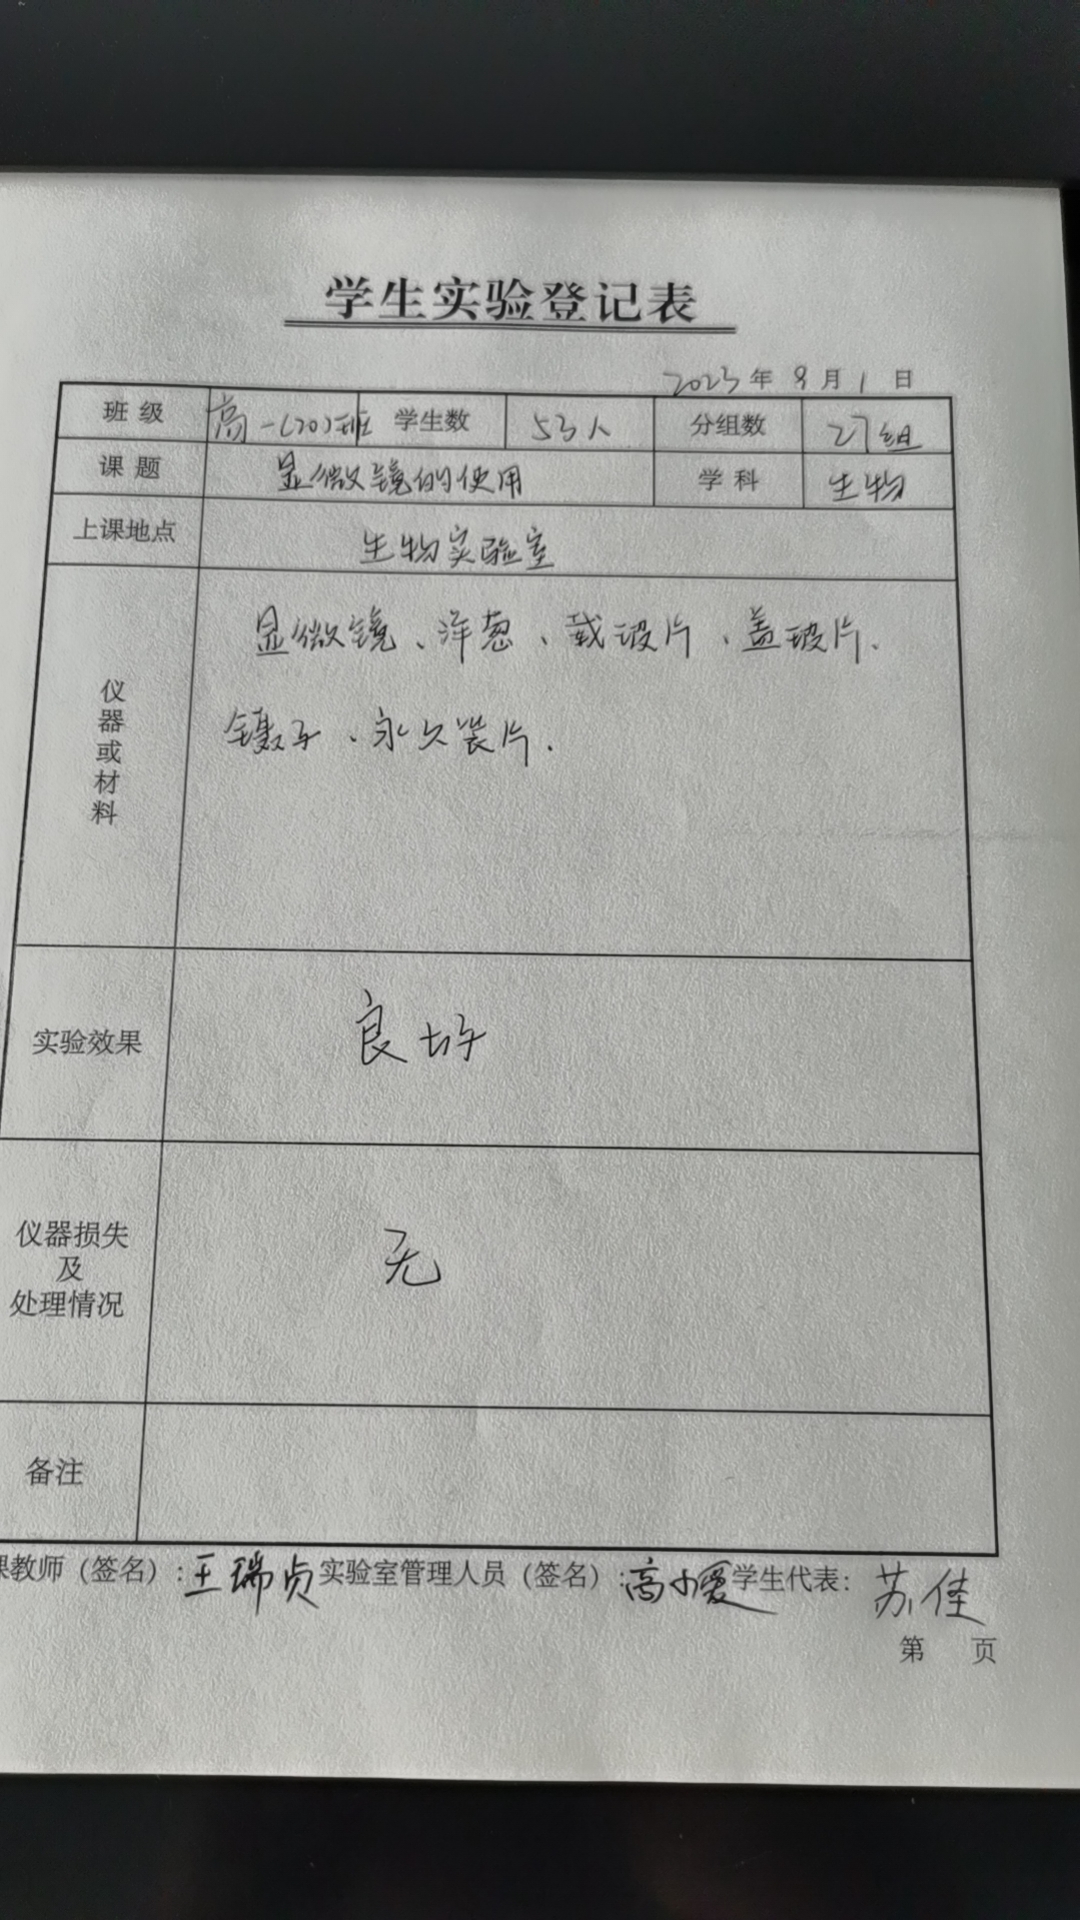 学生实验登记表
2023年9月1日
班级 高一(20)班 学生数 53人 分组数 27组
课题 显微镜的使用 学科 生物
上课地点 生物实验室
仪器或材料 显微镜、洋葱、载玻片、盖玻片、
镊子、永久装片.
实验效果 良好
仪器损失
及
处理情况
无
备注
课教师（签名）:王瑞贞 实验室管理人员（签名）:高小爱 学生代表: 苏佳
第 页